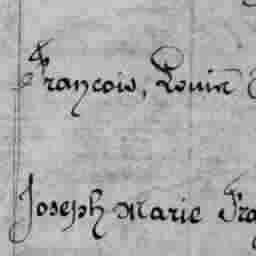 François, Louis
Joseph Marie Fra